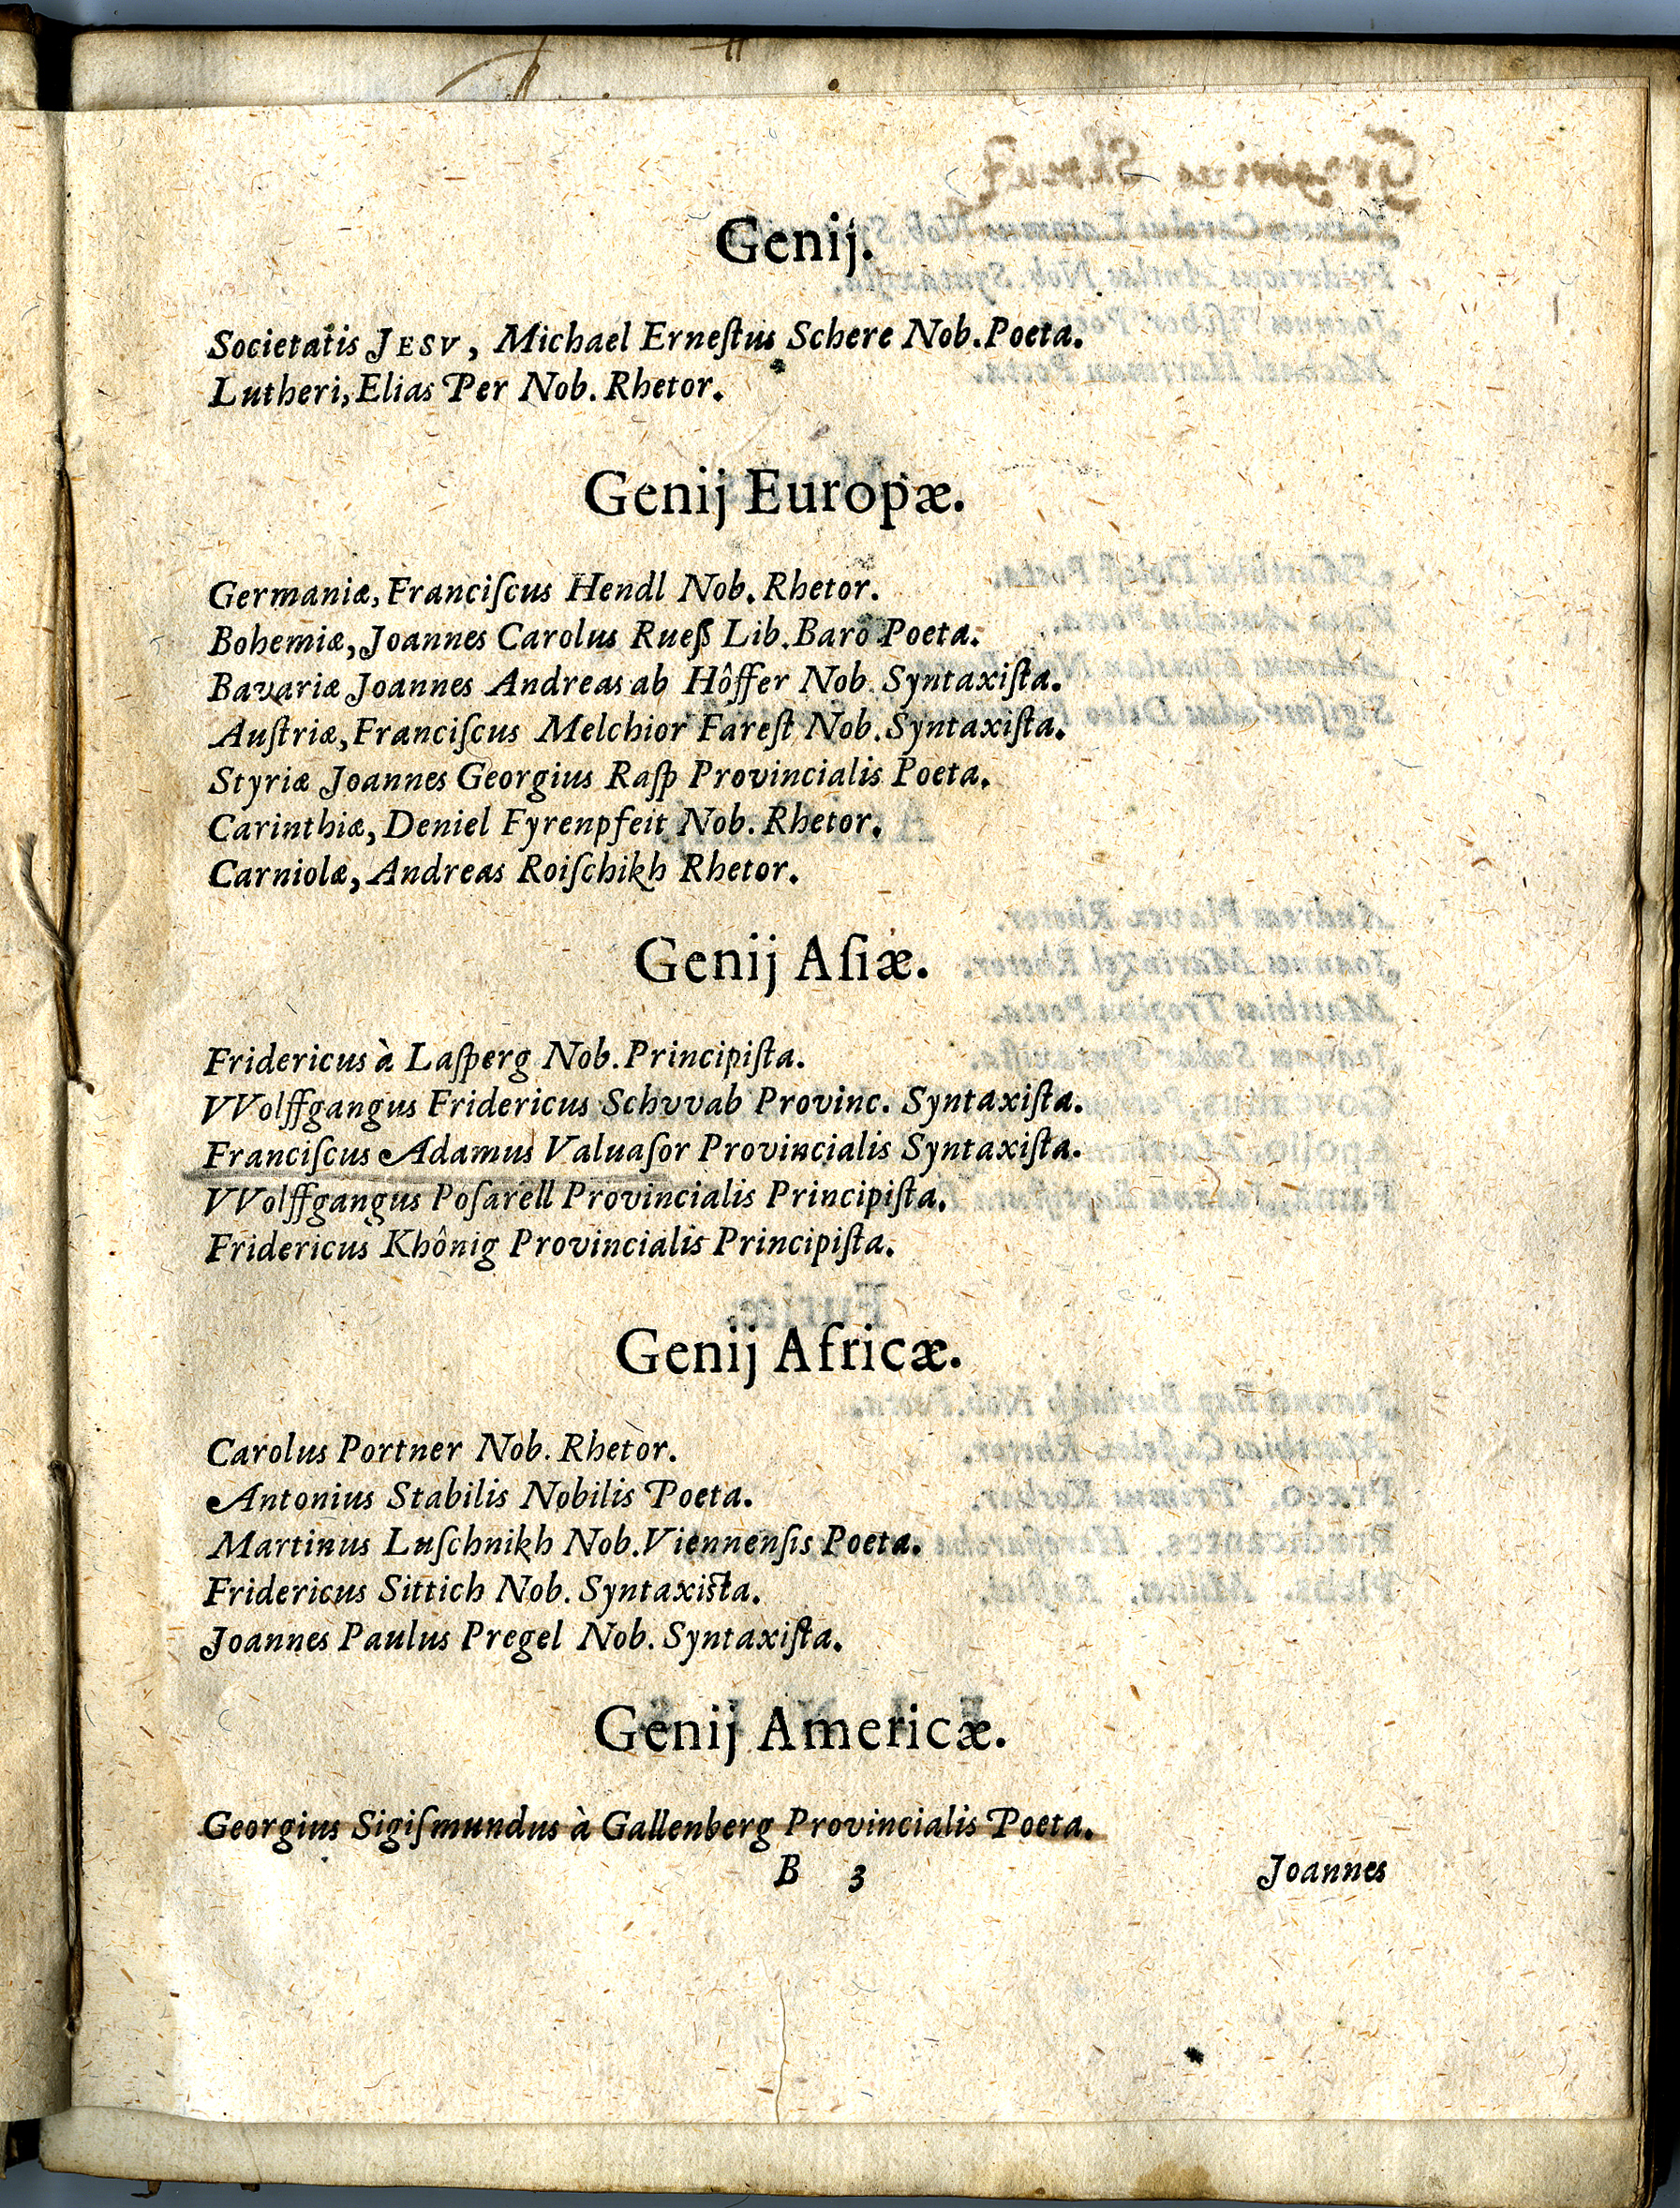 Genij.
Societatis JESV, Michael Erneſtus Schere Nob. Poeta.
Lutheri, Elias Per Nob. Rhetor.
Genij Europæ.
Germaniæ, Franciſcus Hendl Nob. Rhetor.
Bohemiæ, Joannes Carolus Rueß Lib. Baro Poeta.
Bavariæ Joannes Andreas ab Hôffer Nob. Syntaxiſta.
Auſtriæ, Franciſcus Melchior Fareſt Nob. Syntaxiſta.
Styriæ Joannes Georgius Raſp Provincialis Poeta.
Carinthiæ, Deniel Fyrenpfeit Nob. Rhetor.
Carniolæ, Andreas Roiſchikh Rhetor.
Genij Aſiæ.
Fridericus à Laſperg Nob. Principiſta.
VVolffgangus Fridericus Schvvab Provinc. Syntaxiſta.
Franciſcus Adamus Valuaſor Provincialis Syntaxiſta.
VVolffgangus Poſarell Provincialis Principiſta.
Fridericus Khônig Provincialis Principiſta.
Genij Africæ.
Carolus Portner Nob. Rhetor.
Antonius Stabilis Nobilis Poeta.
Martinus Luſchnikh Nob. Viennenſis Poeta.
Fridericus Sittich Nob. Syntaxista.
Joannes Paulus Pregel Nob. Syntaxiſta.
Genij Americæ.
Georgius Sigiſmundus à Gallenberg Provincialis Poeta.
B 3 Joannes